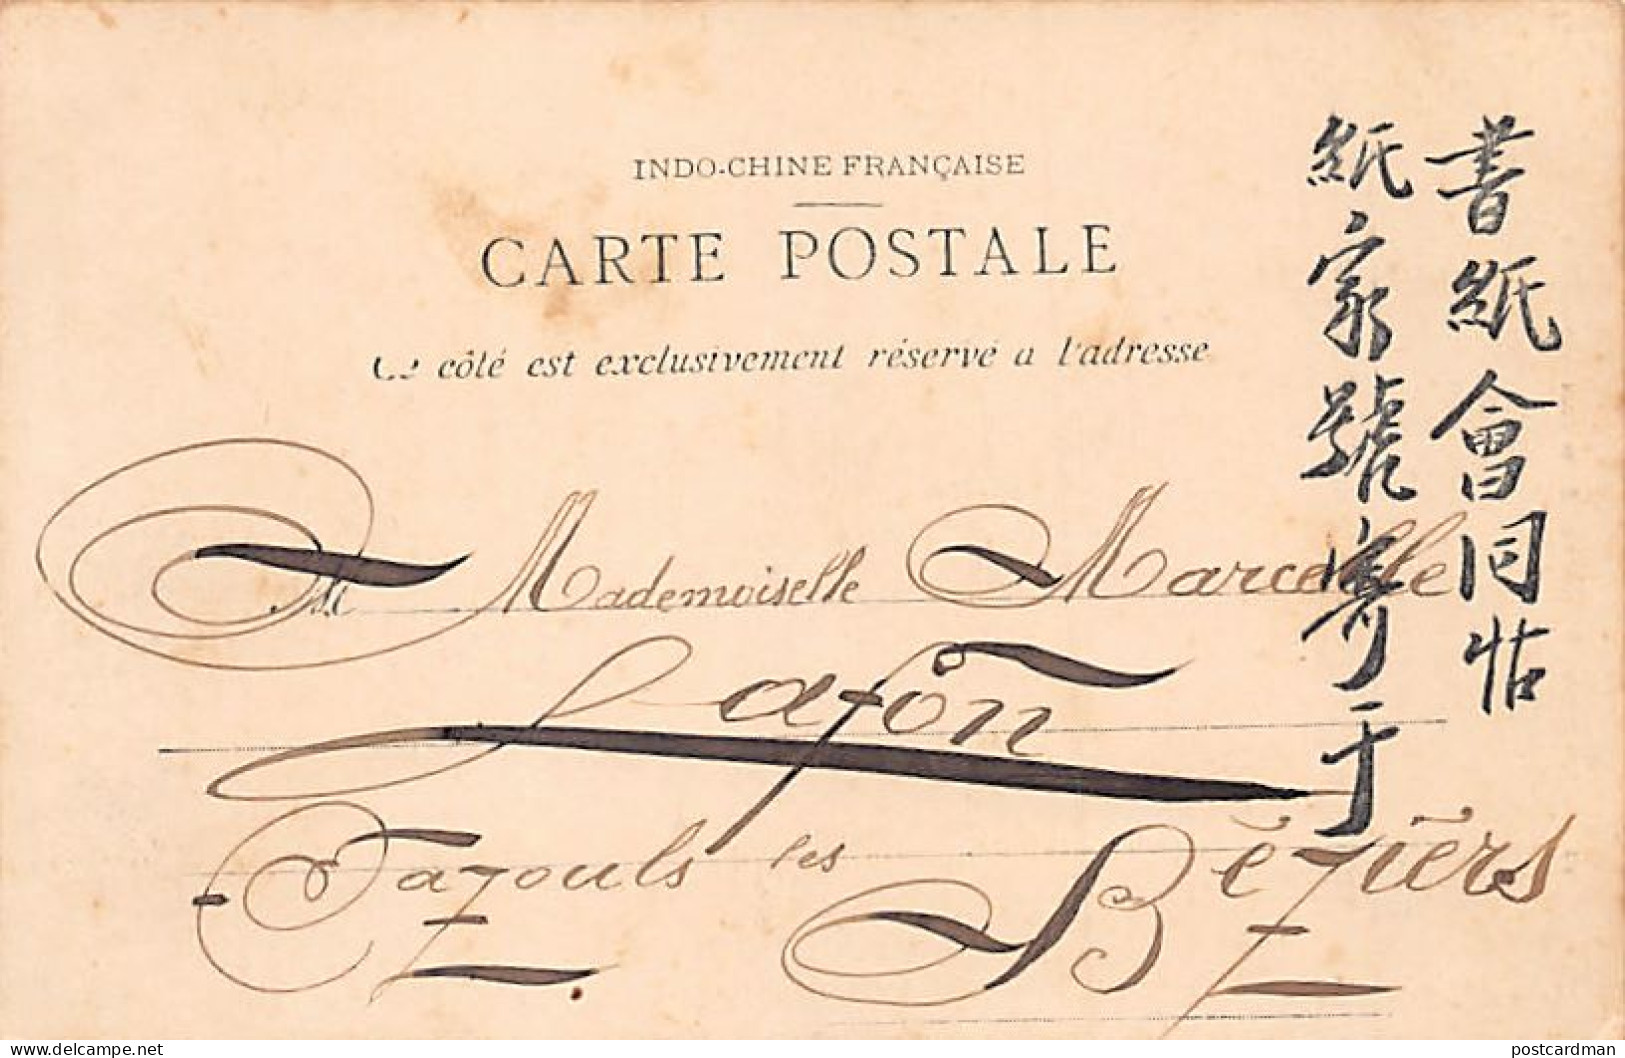 INDO-CHINE FRANÇAISE
CARTE POSTALE
Ce côté est exclusivement réservé a l'adresse
M Mademoiselle Marcelle
Lafon
Cazouls les Béziers
書紙會同帖
紙家號寄于
postcardman